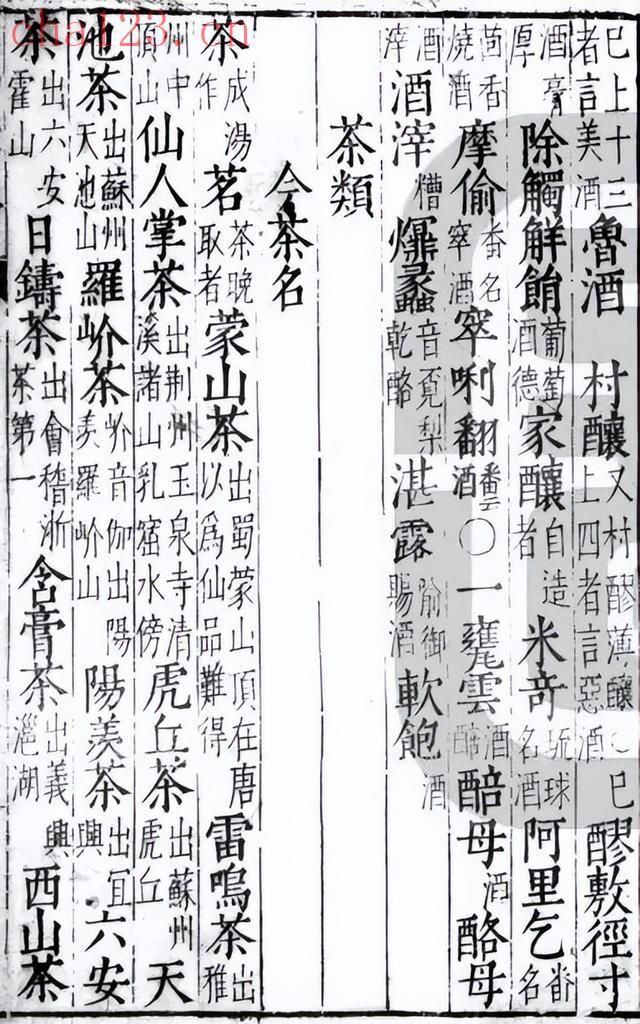 巳上十三者言美酒魯酒 村釀又村醪薄釀○巳上四者言惡酒醪敷徑寸
酒膏厚除觸觧餉葡萄酒德家釀自造者米奇琉球名酒阿里乞畨名
茴香燒酒摩偷畨名窣酒窣唎翻酒○一甕雲酒醅母酒酪母
酒滓酒滓音覔梨乾酪湛露喻御賜酒軟飽酒
茶類
今茶名
茶成湯作茗茶晚取者蒙山茶出蜀蒙山頂在唐以為仙品難得雷鳴茶出雅
州中頂山仙人掌茶出荆州玉泉寺清溪諸山乳窟水傍虎丘茶出蘇州虎丘天
池茶出蘇州天池山羅岕茶岕音伽出陽羡羅岕山陽羡茶出宜興六安
茶出六安霍山日鑄茶出會稽浙茶第一含膏茶出義興㴩湖西山茶
cha123.cn